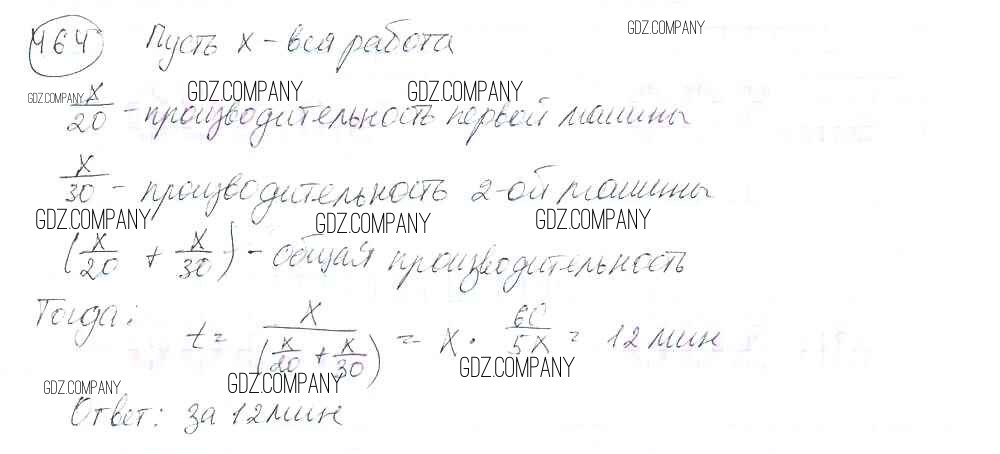 464 Пусть x - вся работа GDZ.COMPANY
GDZ.COMPANY GDZ.COMPANY GDZ.COMPANY
x/20 - производительность первой машины
x/30 - производительность 2-ой машины
GDZ.COMPANY GDZ.COMPANY GDZ.COMPANY
(x/20 + x/30) - общая производительность
Тогда:
t = x/(x/20 + x/30) = x · 60/5x = 12 мин
GDZ.COMPANY GDZ.COMPANY GDZ.COMPANY
Ответ: за 12 мин